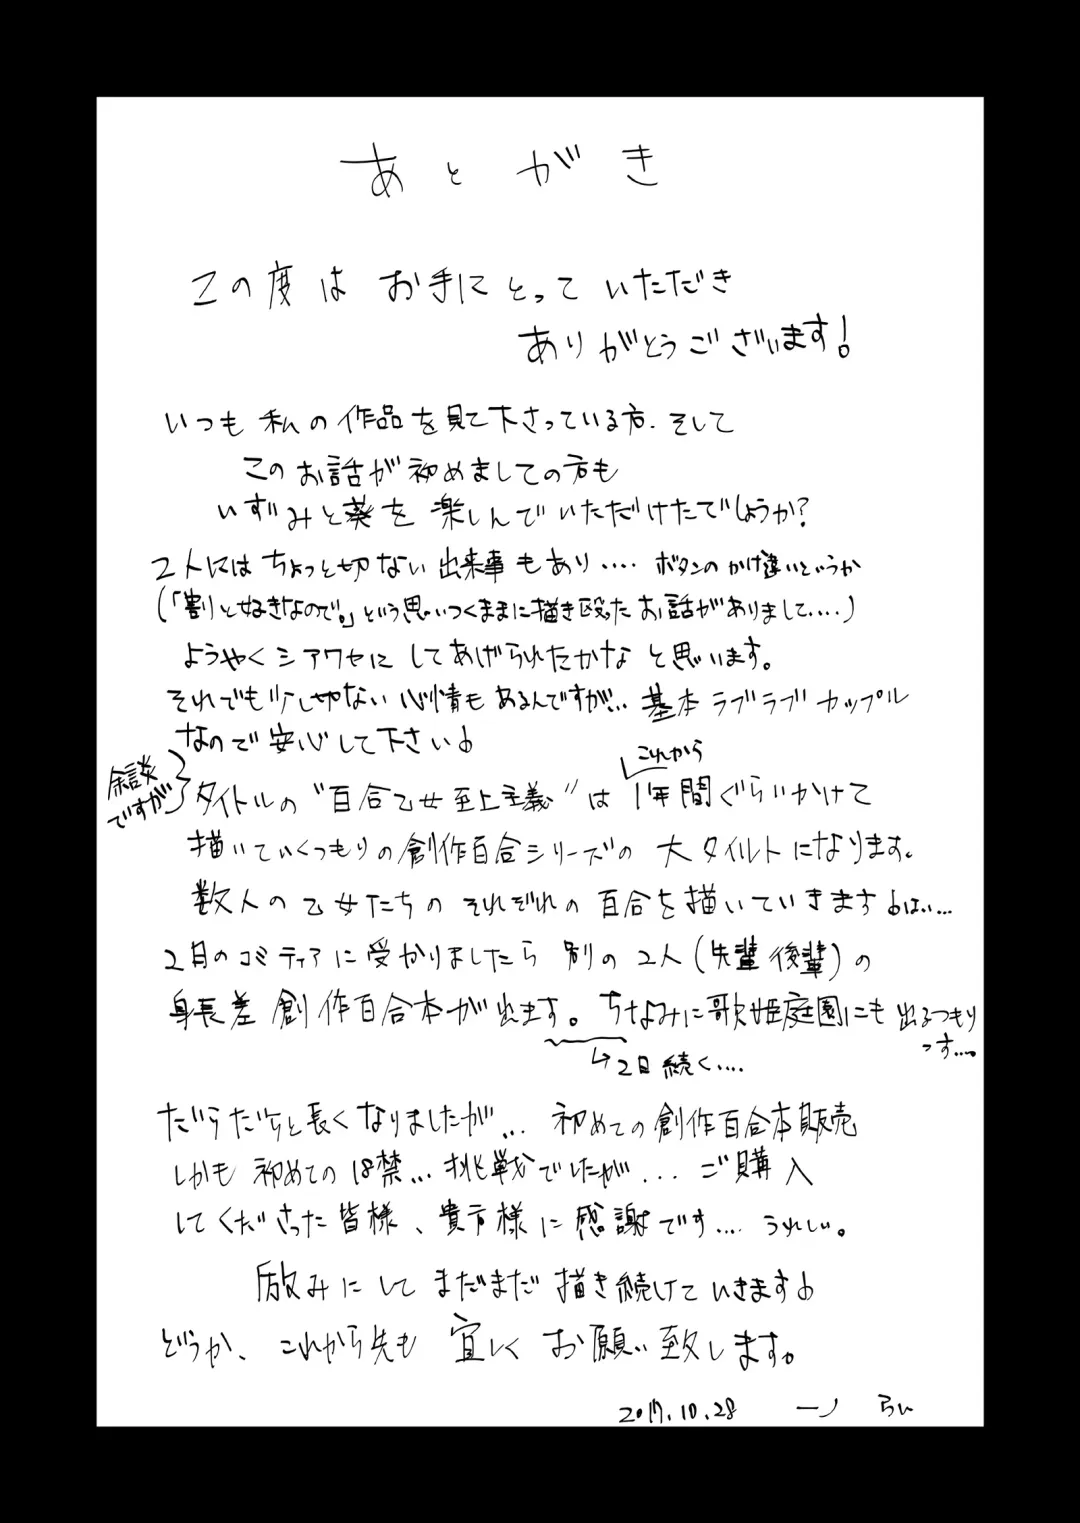 あとがき
この度は お手にとって いただき
ありがとうございます!
いつも 私の 作品を見て下さっている方. そして
このお話が初めましての方も
いずみと葵を楽しんでいただけたでしょうか?
2人にはちょっと切ない出来事もあり.... ボタンのかけ違いというか
(「割と好きなので。」という思いつくままに描き殴ったお話がありまして....)
ようやくシアワセにしてあげられたかな と思います。
それでも少し切ない心情もあるんですが... 基本ラブラブカップル
なので安心して下さい♪
余談
ですが
これから
タイトルの“百合乙女至上主義”は1年間ぐらいかけて
描いていくつもりの創作百合シリーズの 大タイルトになります。
数人の乙女たちの それぞれの 百合を描いていきます♪はい...
2月のコミティアに受かりましたら 別の2人(先輩後輩)の
身長差 創作百合本が出ます。 ちなみに歌姫庭園にも 出るつもり
っす....
↳2日続く....
だらだらと長くなりましたが... 初めての創作百合本販売
しかも 初めての18禁... 挑戦でしたが... ご購入
してくださった皆様、貴方様に感謝です.... うれしい。
励みにして まだまだ 描き続けていきます♪
どうか、これから先も 宜しく お願い致します。
2017.10.28 一ノ らい